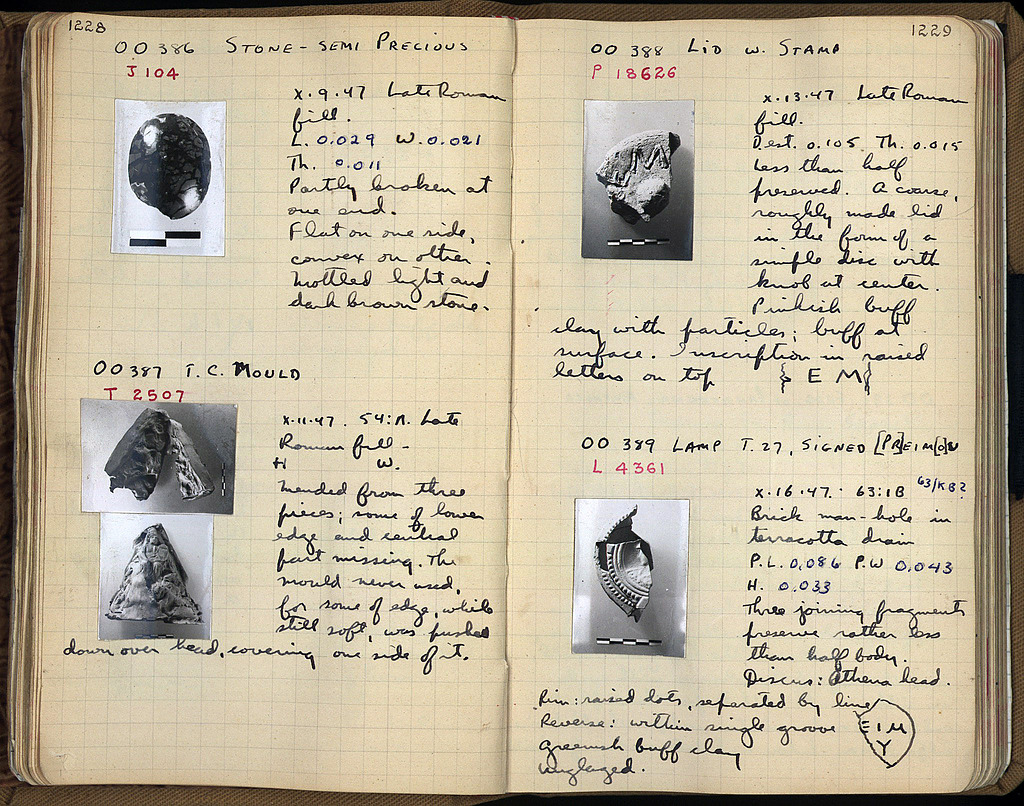 1228
OO 386 STONE-SEMI PRECIOUS
J 104
X.9.47 Late Roman
fill.
L. 0.029 W. 0.021
Th. 0.011
Partly broken at
one end.
Flat on one side,
convex on other.
Mottled light and
dark brown stone.
OO 387 T.C. MOULD
T 2507
X.11.47. 54:A. Late
Roman fill -
H W.
Mended from three
pieces; some of lower
edge and central
part missing. The
mould never used,
for some of edge, while
still soft, was pushed
down over head, covering one side of it.
1229
OO 388 LID W. STAMP
P 18626
X.13.47 Late Roman
fill.
D. est. 0.105 Th. 0.015
Less than half
preserved. A coarse,
roughly made lid
in the form of a
simple disc with
knob at center.
Pinkish buff
clay with particles; buff at
surface. Inscription in raised
letters on top E M
OO 389 LAMP T. 27, SIGNED [PR]EIM[O]U
L 4361
X.16.47. 63:1B 63/KB?
Brick man-hole in
terracotta drain
P.L. 0.086 P.W 0.043
H. 0.033
Three joining fragments
preserve rather less
than half body.
Discus: Athena head.
Rim: raised dots, separated by line
Reverse: within single groove
EIM
Y
Greenish buff clay
Unglazed.